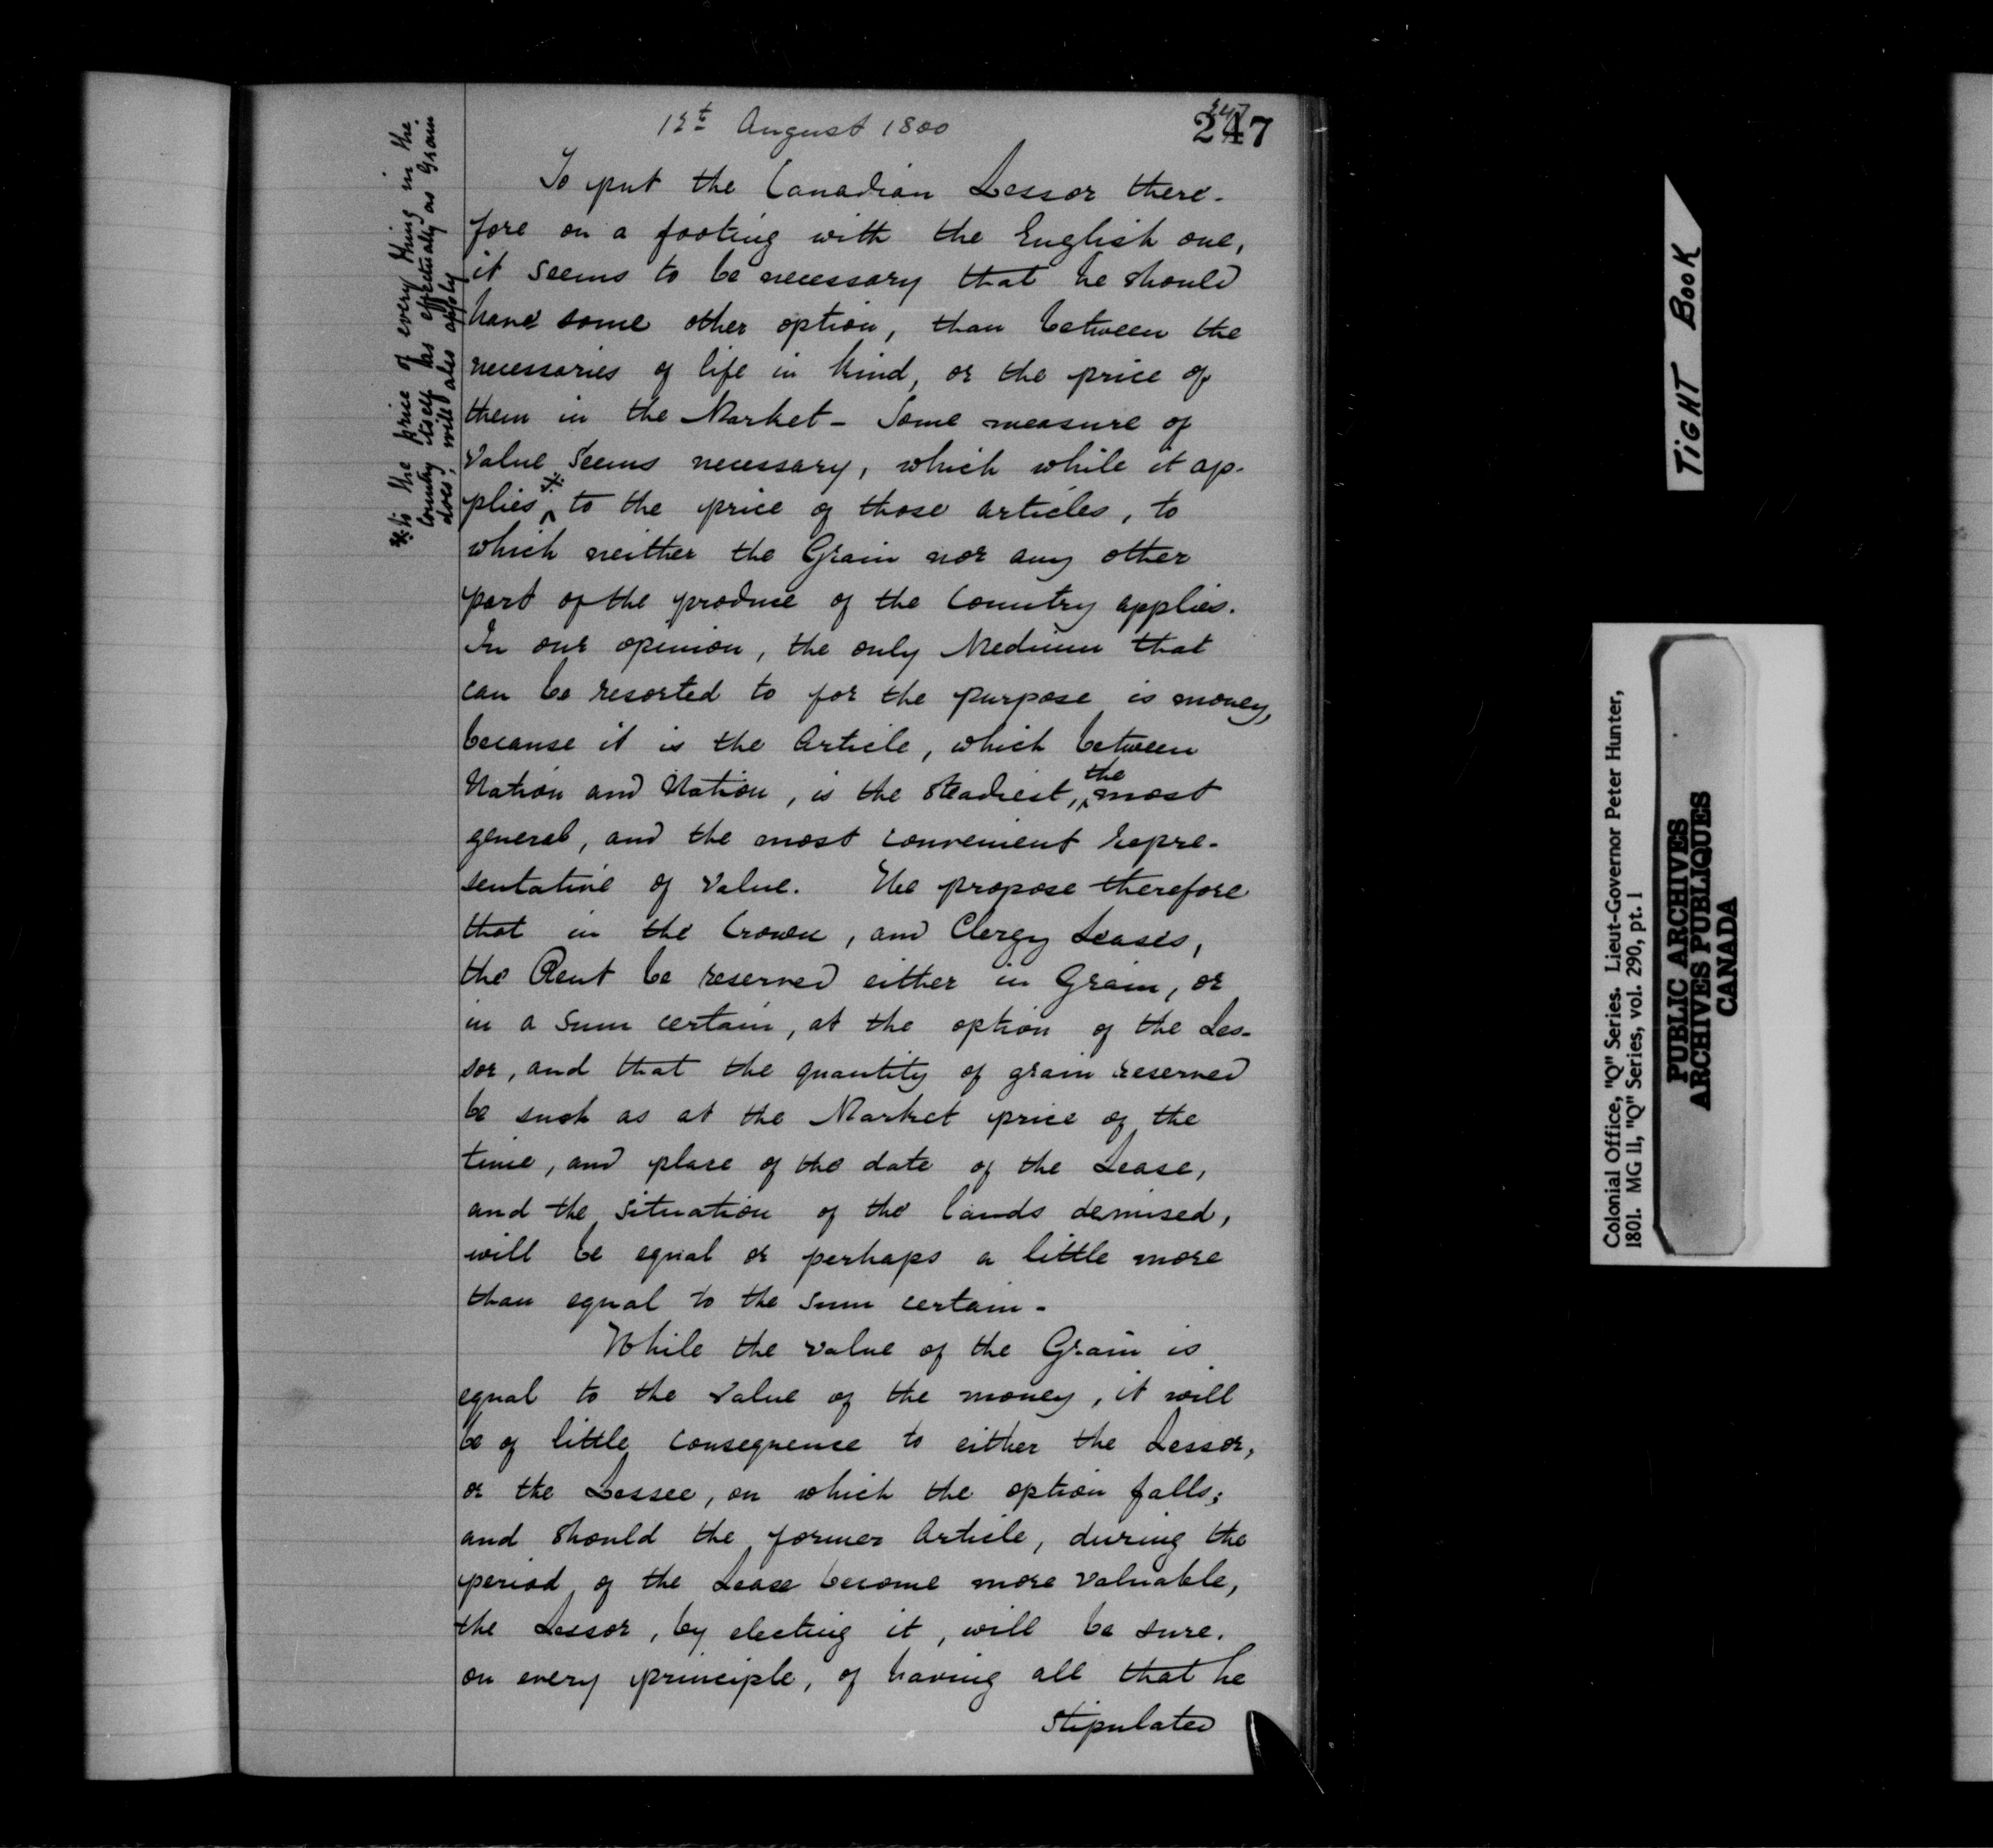 12t August 1800
247
247
To put the Canadian Lessor there-
fore on a footing with the English one,
it seems to be necessary that he should
have some other option, than between the
necessaries of life in kind, or the price of
them in the Market - Some measure of
Value seems necessary, which while it ap-
plies ⁂ to the price of those articles, to
which neither the Grain nor any other
part of the produce of the Country applies.
In our opinion, the only Medium that
can be resorted to for the purpose is money,
because it is the Article, which between
Nation and Nation, is the steadiest, the most
general, and the most convenient repre-
sentative of Value. We propose therefore
that in the Crown, and Clergy Leases,
the Rent be reserved either in Grain, or
in a sum certain, at the option of the Les-
sor, and that the quantity of grain reserved
be such as at the Market price of the
time, and place of the date of the Lease,
and the situation of the lands demised,
will be equal or perhaps a little more
than equal to the sum certain -
While the value of the Grain is
equal to the Value of the money, it will
be of little consequence to either the Lessor,
or the Lessee, on which the option falls;
and should the former Article, during the
period of the Lease become more valuable,
the Lessor, by electing it, will be sure.
on every principle, of having all that he
stipulated
⁂ to the price of every thing in the
Country itself as effectually as Grain
does, will also apply
TIGHT BOOK
Colonial Office, "Q" Series. Lieut-Governor Peter Hunter,
1801. MG 11, "Q" Series, vol. 290, pt. 1
PUBLIC ARCHIVES
ARCHIVES PUBLIQUES
CANADA